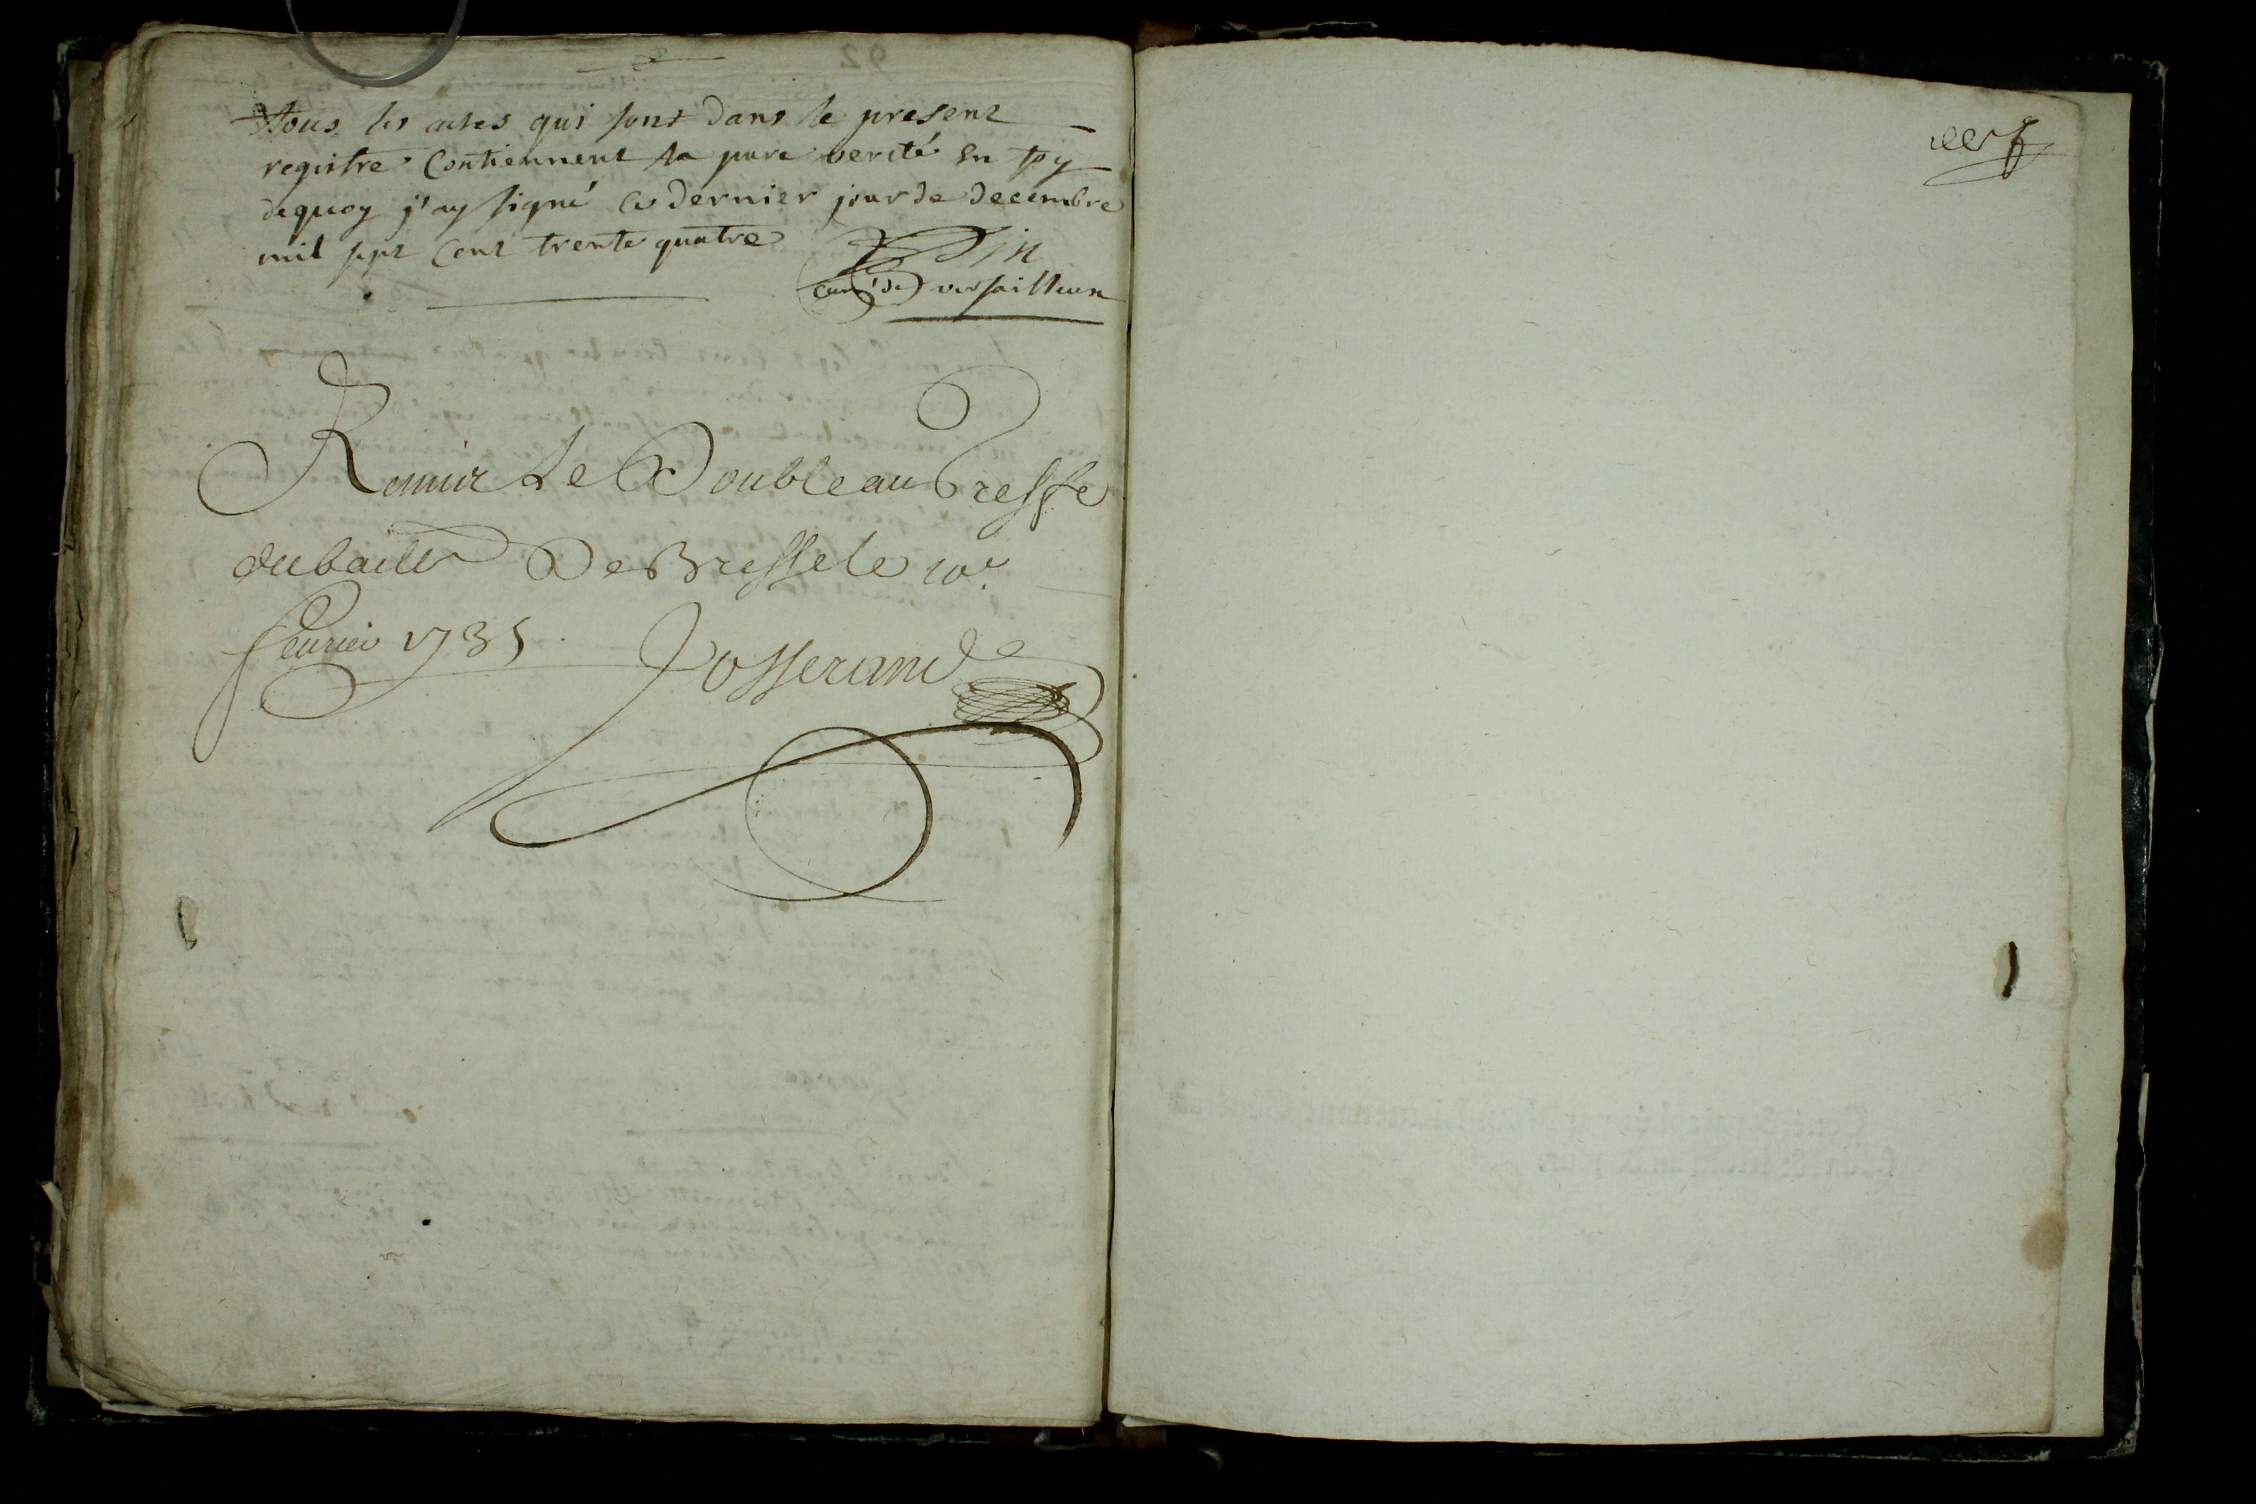 Tous les actes qui sont dans le present
registre Contiennent la pure verité En foy
dequoy j'ay signé Ce dernier jour de decembre
mil sept cent trente quatre
curé de versailleux
Remis Le Double au Greffe
du bailla De Bresse le 10e
fevrier 1735. Josserand